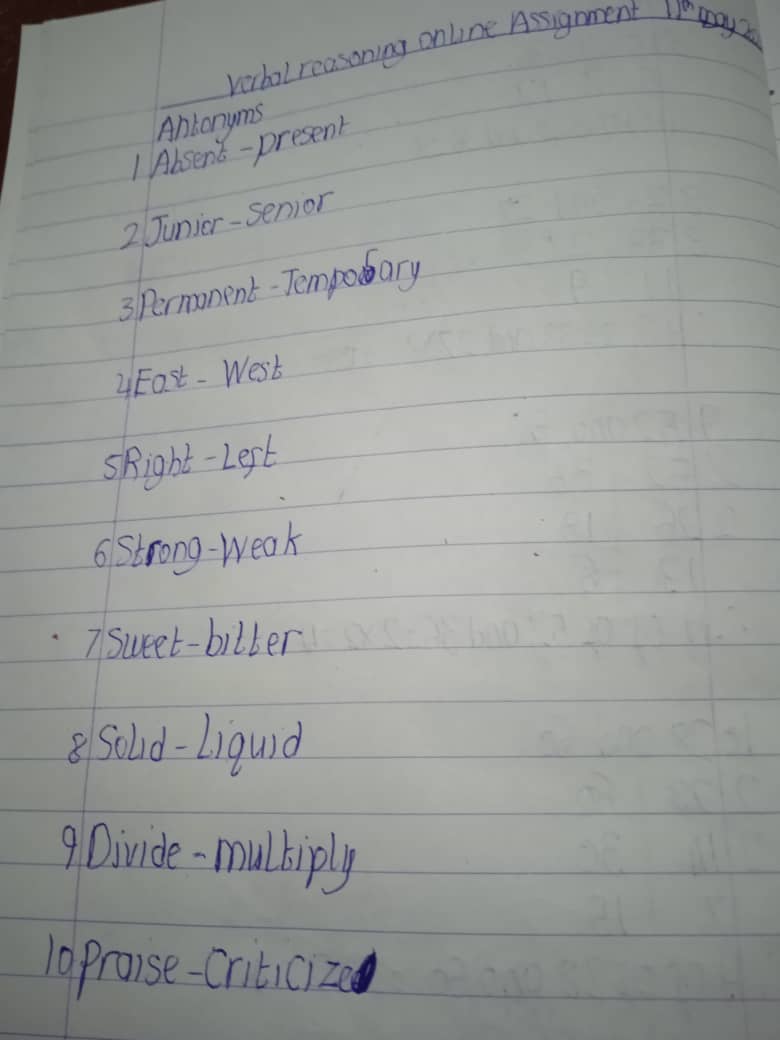 Verbal reasoning online Assignment 11th may 20
Antonyms
1 Absent - present
2 Junior - Senior
3 Permanent - Temporary
4 East - West
5 Right - Left
6 Strong - Weak
7 Sweet - bitter
8 Solid - Liquid
9 Divide - multiply
10 Praise - Criticize